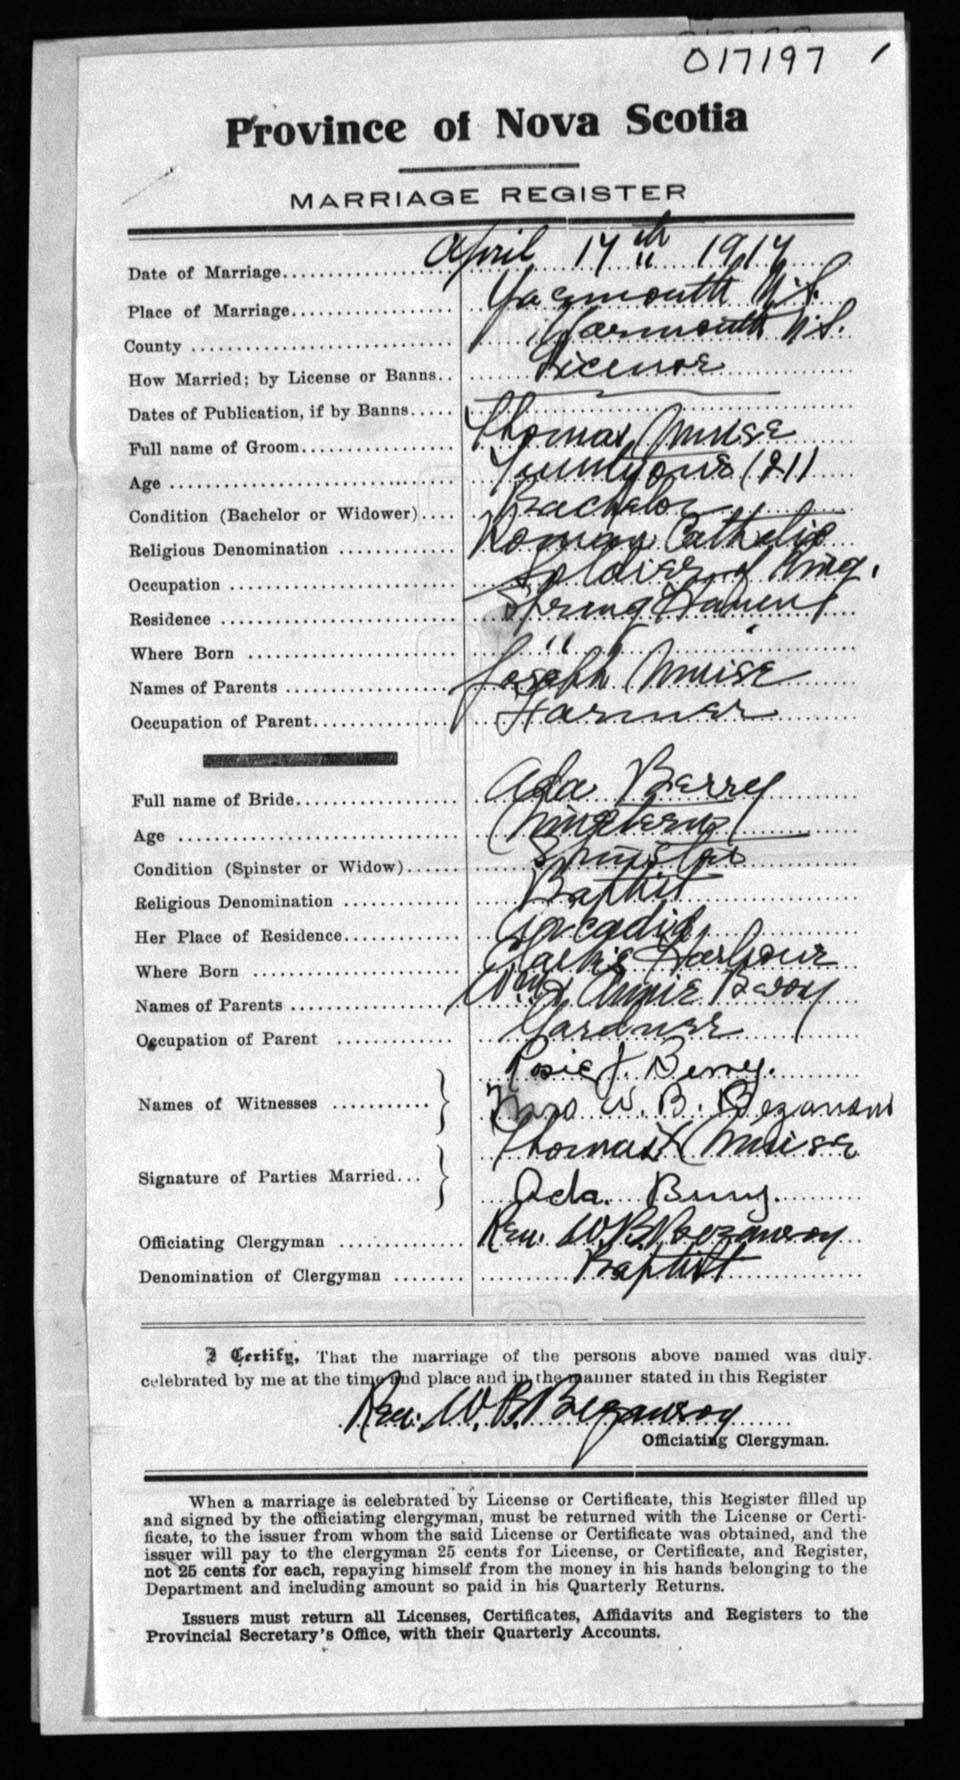 017197
Province of Nova Scotia
MARRIAGE REGISTER
Date of Marriage April 17th 1917
Place of Marriage Yarmouth N.S.
County Yarmouth N.S.
How Married; by License or Banns License
Dates of Publication, if by Banns
Full name of Groom Thomas Muise
Age Twentyone (21)
Condition (Bachelor or Widower) Bachelor
Religious Denomination Roman Catholic
Occupation Soldier of King.
Residence
Where Born " "
Names of Parents Joseph Muise
Occupation of Parent Farmer
Full name of Bride Ada Berry
Age Nineteen
Condition (Spinster or Widow) Spinster
Religious Denomination Baptist
Her Place of Residence Arcadia
Where Born Clark's Harbour
Names of Parents Wm & Annie Berry
Occupation of Parent Gardner
Names of Witnesses Rosie J. Berry.
Mrs W. B. Bezanson
Signature of Parties Married Thomas X Muise
Ada Berry.
Officiating Clergyman Rev. W. B. Bezanson
Denomination of Clergyman Baptist
I Certify, That the marriage of the persons above named was duly
celebrated by me at the time and place and in the manner stated in this Register
Rev. W. B. Bezanson
Officiating Clergyman.
When a marriage is celebrated by License or Certificate, this Register filled up
and signed by the officiating clergyman, must be returned with the License or Certi-
ficate, to the issuer from whom the said License or Certificate was obtained, and the
issuer will pay to the clergyman 25 cents for License, or Certificate, and Register,
not 25 cents for each, repaying himself from the money in his hands belonging to the
Department and including amount so paid in his Quarterly Returns.
Issuers must return all Licenses, Certificates, Affidavits and Registers to the
Provincial Secretary's Office, with their Quarterly Accounts.